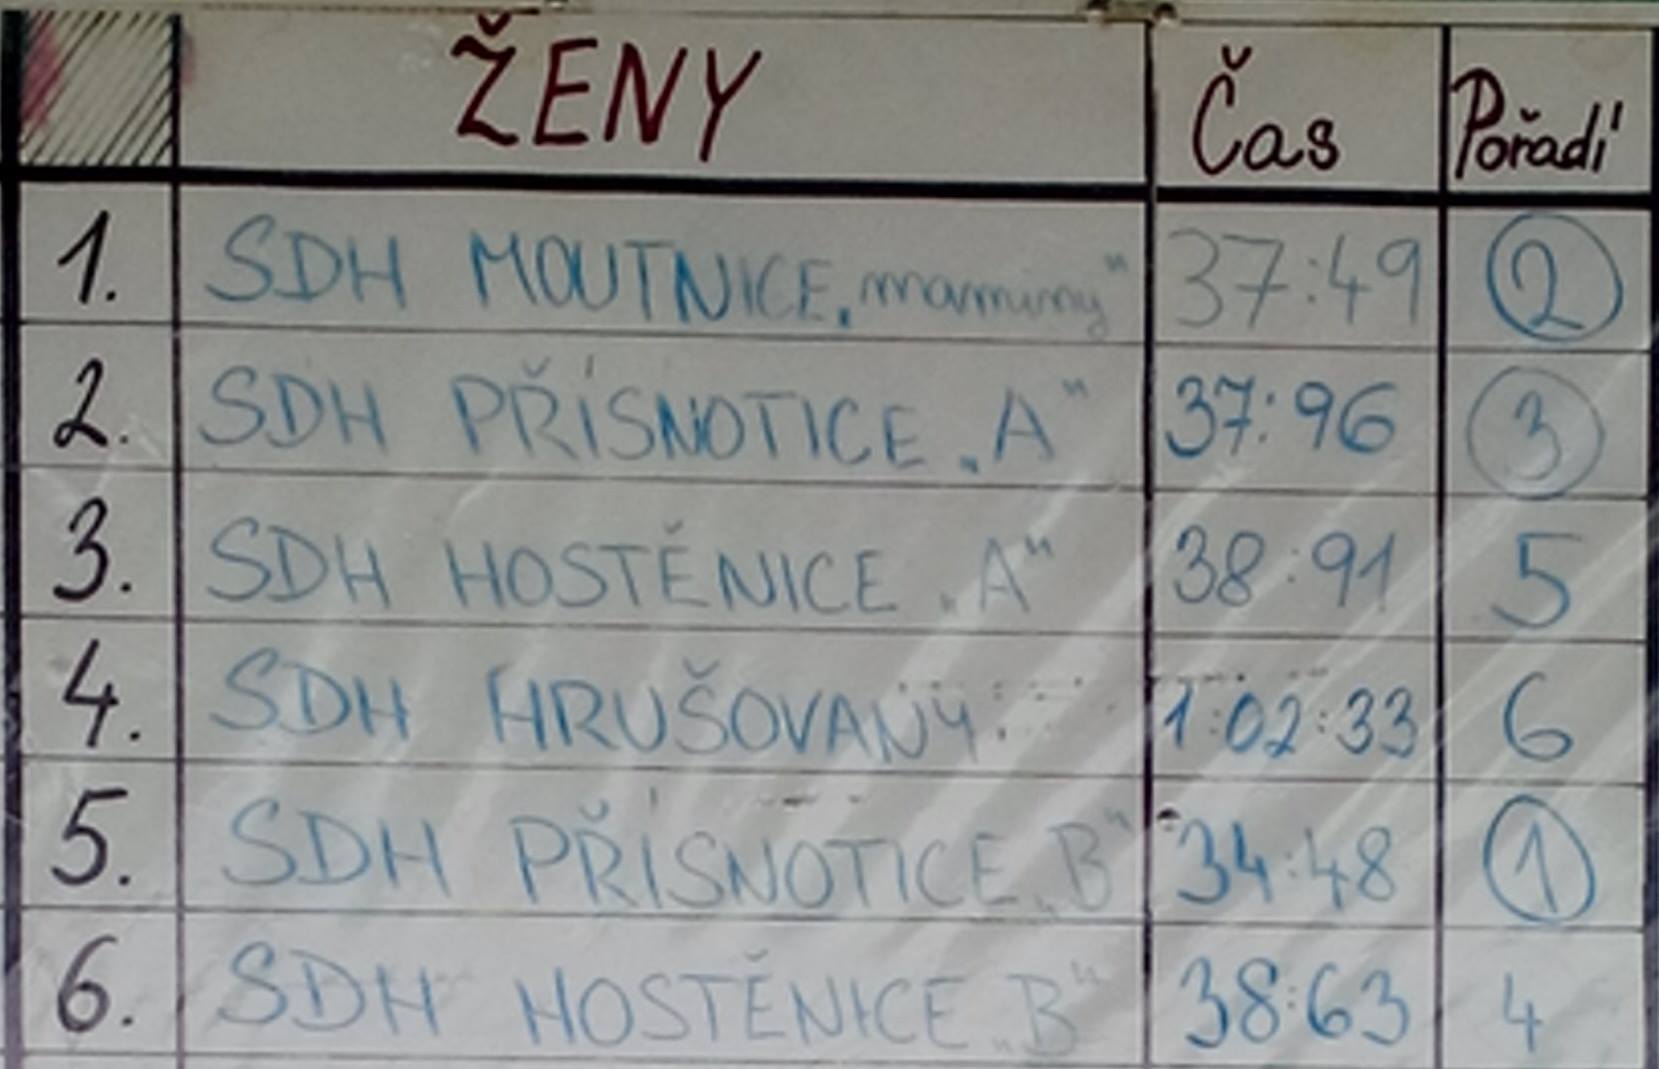 ŽENY Čas Pořadí
1. SDH MOUTNICE „maminy" 37:49 2
2. SDH PŘÍSNOTICE „A" 37:96 3
3. SDH HOSTĚNICE „A" 38:91 5
4. SDH HRUŠOVANY 1:02:33 6
5. SDH PŘÍSNOTICE „B" 34:48 1
6. SDH HOSTĚNICE „B" 38:63 4